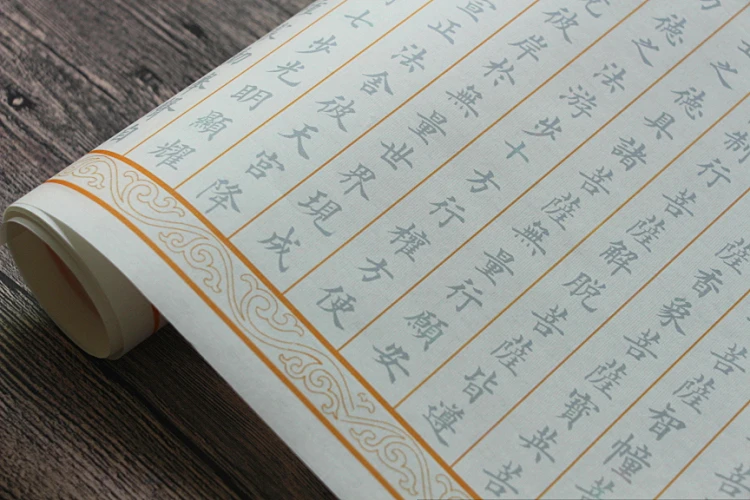 菩薩智幢菩
薩香象菩薩寶英菩
制行菩薩解脫菩薩皆遵
之德具諸菩薩無量行願安
德之法游步十方行權方便
彼岸於無量世界現成
宣正法舍彼天宮降
七步光明顯耀